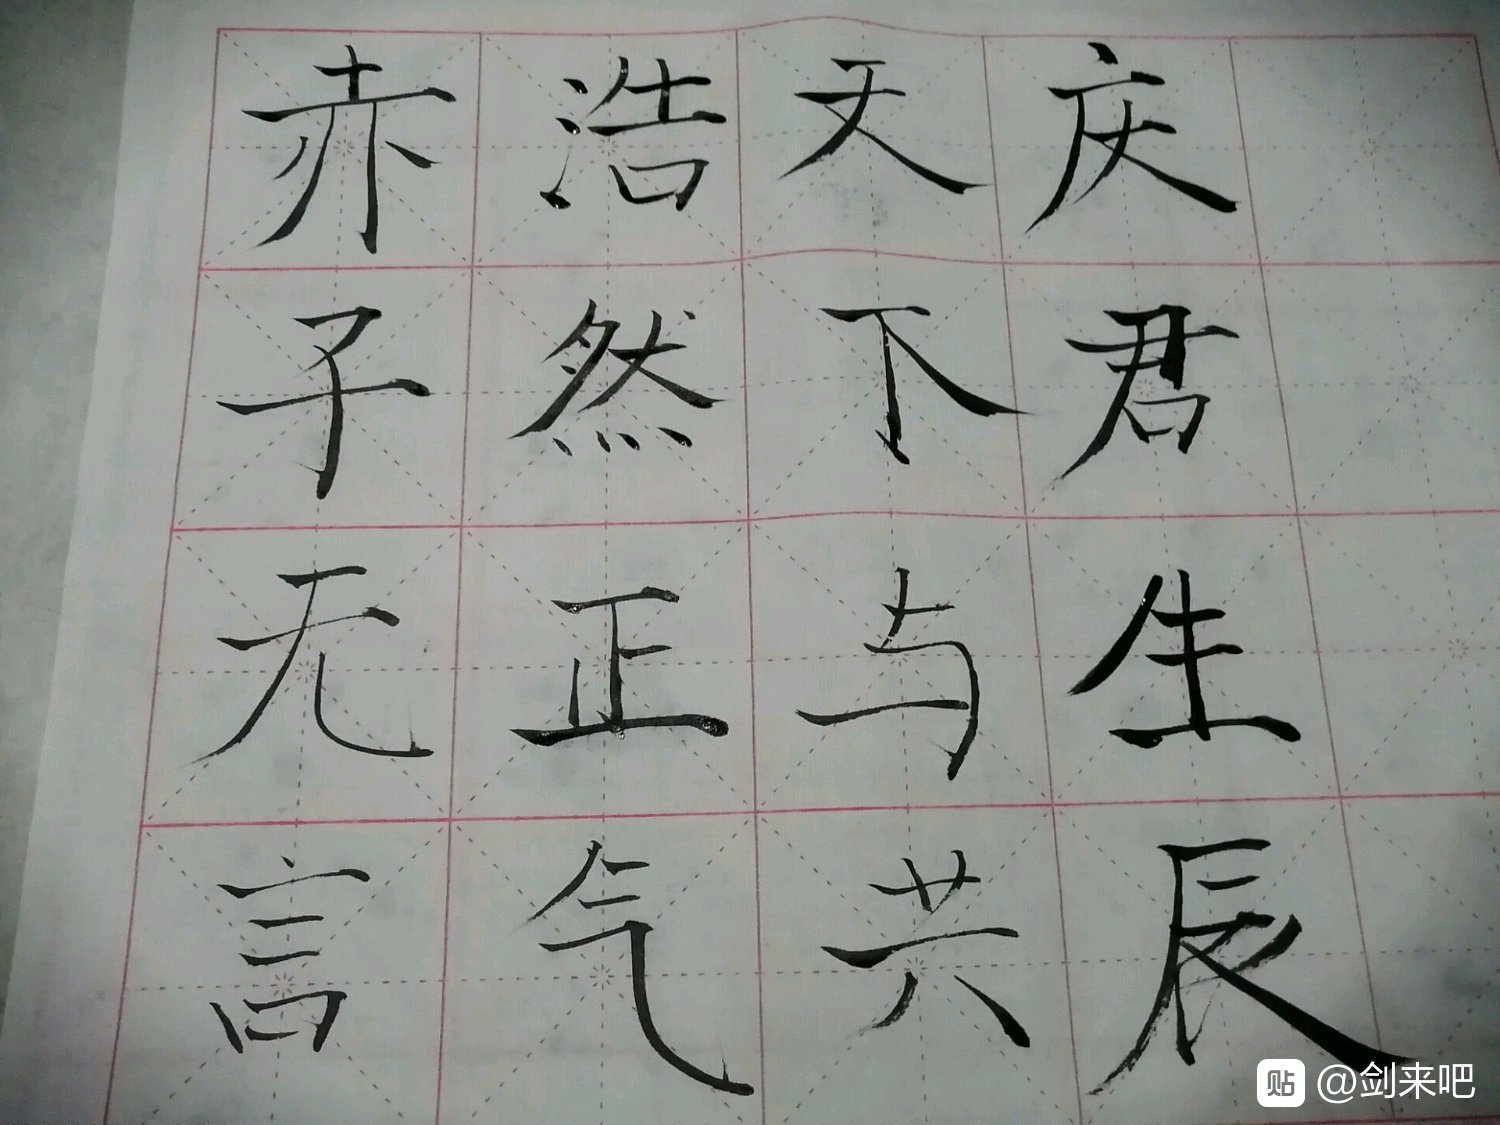 赤子无言
浩然正气
天下与共
庆君生辰
贴 @剑来吧